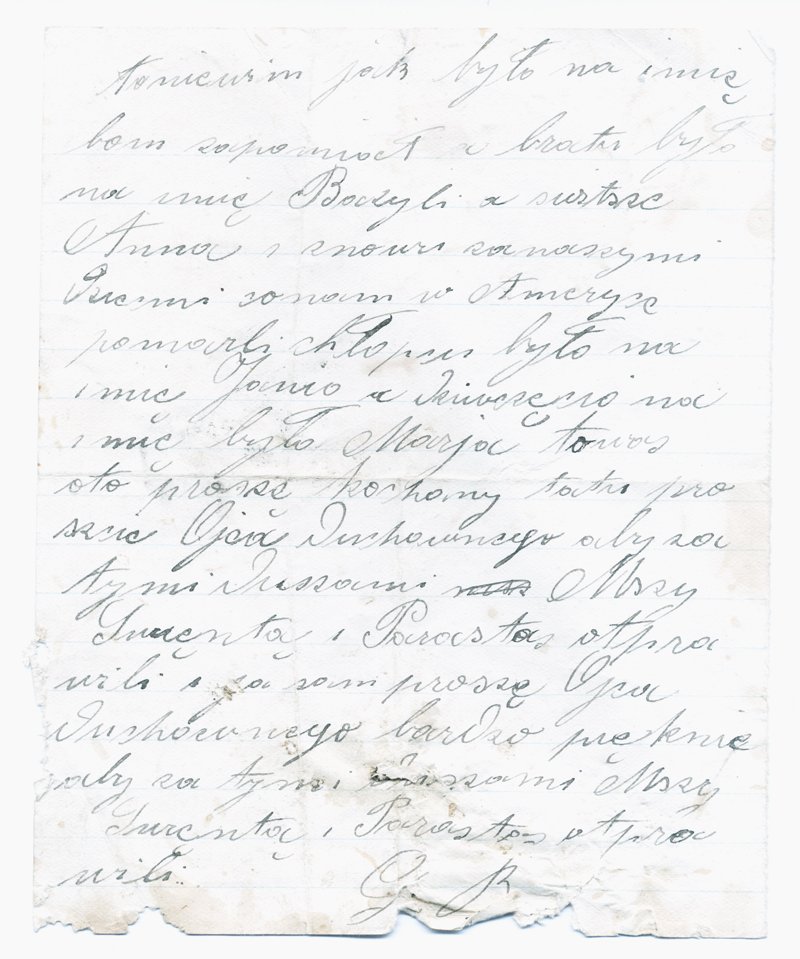 toniewim jak było na imię
bom zapomniał a bratu było
na imię Bazyli a siostsze
Anna i znowu zanaszymi
Dziecmi conam w Ameryce
pomarli chłopcu było na
imię Janio a dziwczęcio na
imię było Marja towas
oto proszę kochany tatu pro
szcie Ojca Duchownego aby za
tymi Duszami Mszy
Swięntą i Parastas otpra
wili i ja sam proszę Ojca
Duchownego bardzo pięknie
aby za tymi duszami Mszy
Swięntą i Parastas otpra
wili.